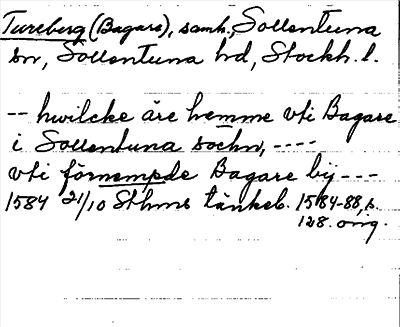 Tureberg (Bagare), samh., Sollentuna
sn, Sollentuna hd, Stockh. l.
-- hwilcke äre hemme vti Bagare
i Sollentuna sochn, ----
vti förnempde Bagare bij ---
1584 21/10 Sthms tänkeb. 1584-88, s.
128. orig.